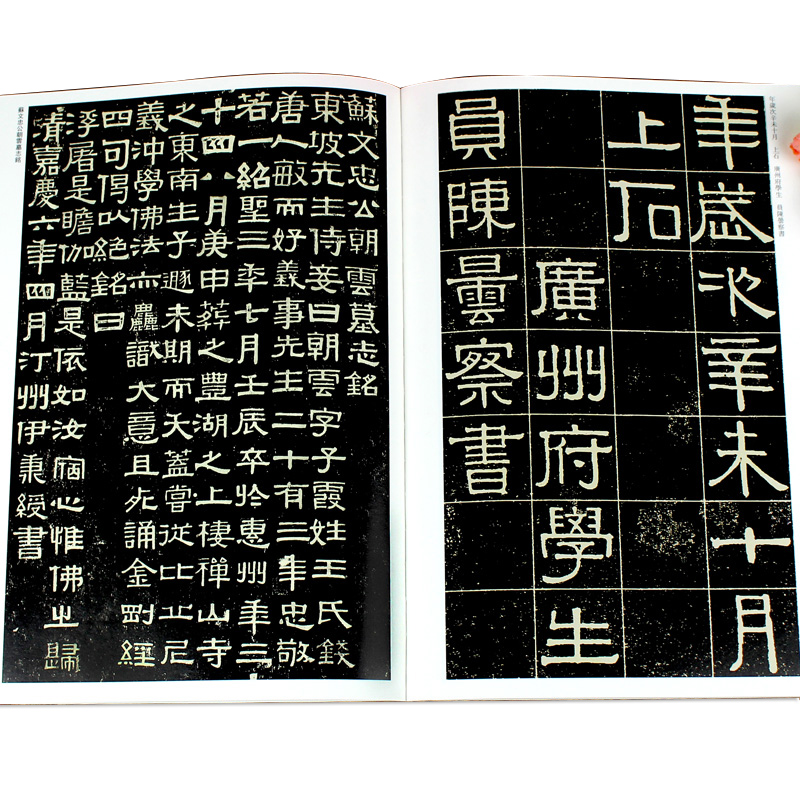 年歲次辛未十月 上石 廣州府學生 員陳曇察書
年歲次辛未十月
上石
廣州府學生
員陳曇察書
蘇文忠公朝雲墓志銘
東坡先生侍妾曰朝雲字子霞姓王氏錢
唐人敏而好義事先生二十有三年忠敬
若一紹聖三年七月壬辰卒於惠州年三
十四八月庚申葬之豐湖之上棲禪山寺
之東南生子遯未期而夭蓋嘗從比丘尼
義沖學佛法亦麤識大意且死誦金剛經
四句偈以絕銘曰
浮屠是瞻伽藍是依如汝宿心惟佛之歸
清嘉慶六年四月汀州伊秉綬書
蘇文忠公朝雲墓志銘